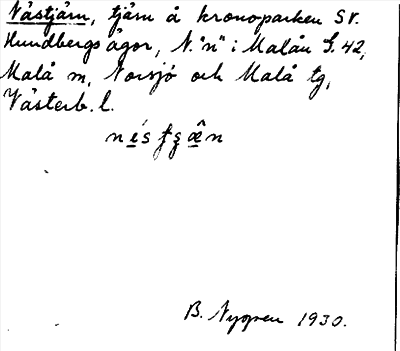 Nästjärn, tjärn å kronoparken SV.
Hundbergs ägor, N. "n" i Malån S. 42,
Malå sn, Norsjö och Malå tg,
Västerb. l.
B. Nygren 1930.